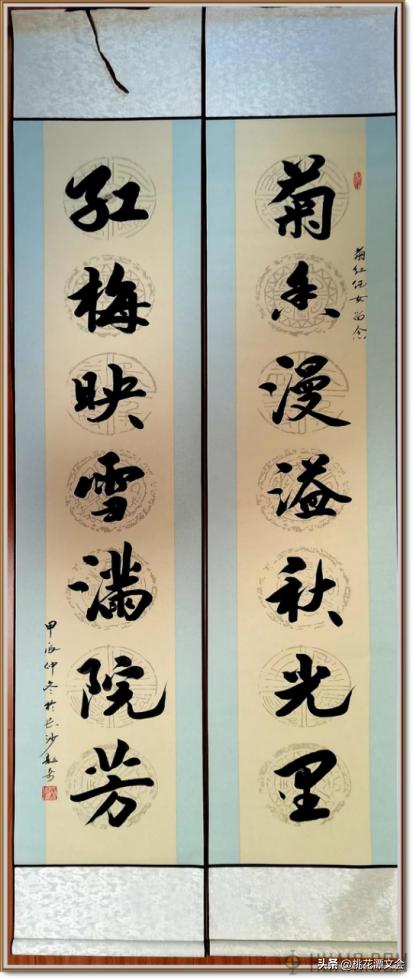 菊香漫溢秋光里
菊红侄女留念
红梅映雪满院芳
甲辰仲冬于长沙
头条 @桃花潭文会